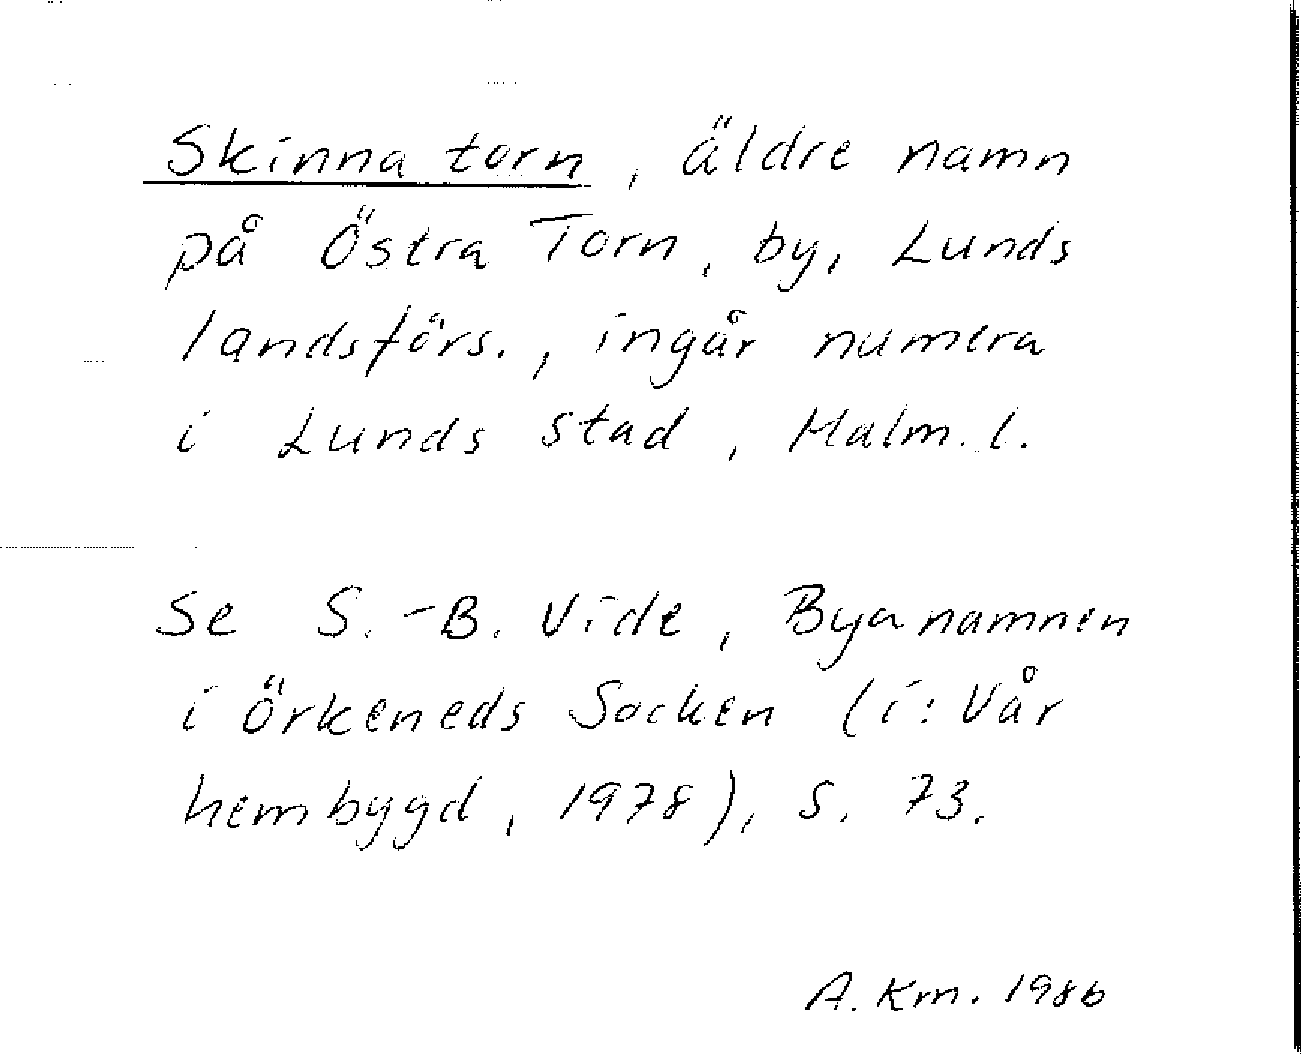 Skinna torn, äldre namn
på Östra Torn, by, Lunds
landsförs., ingår numera
i Lunds stad, Malm. l.
Se S.-B. Vide, Byanamnen
i Örkeneds Socken (i: Vår
hembygd, 1978), s. 73.
A. Km. 1986